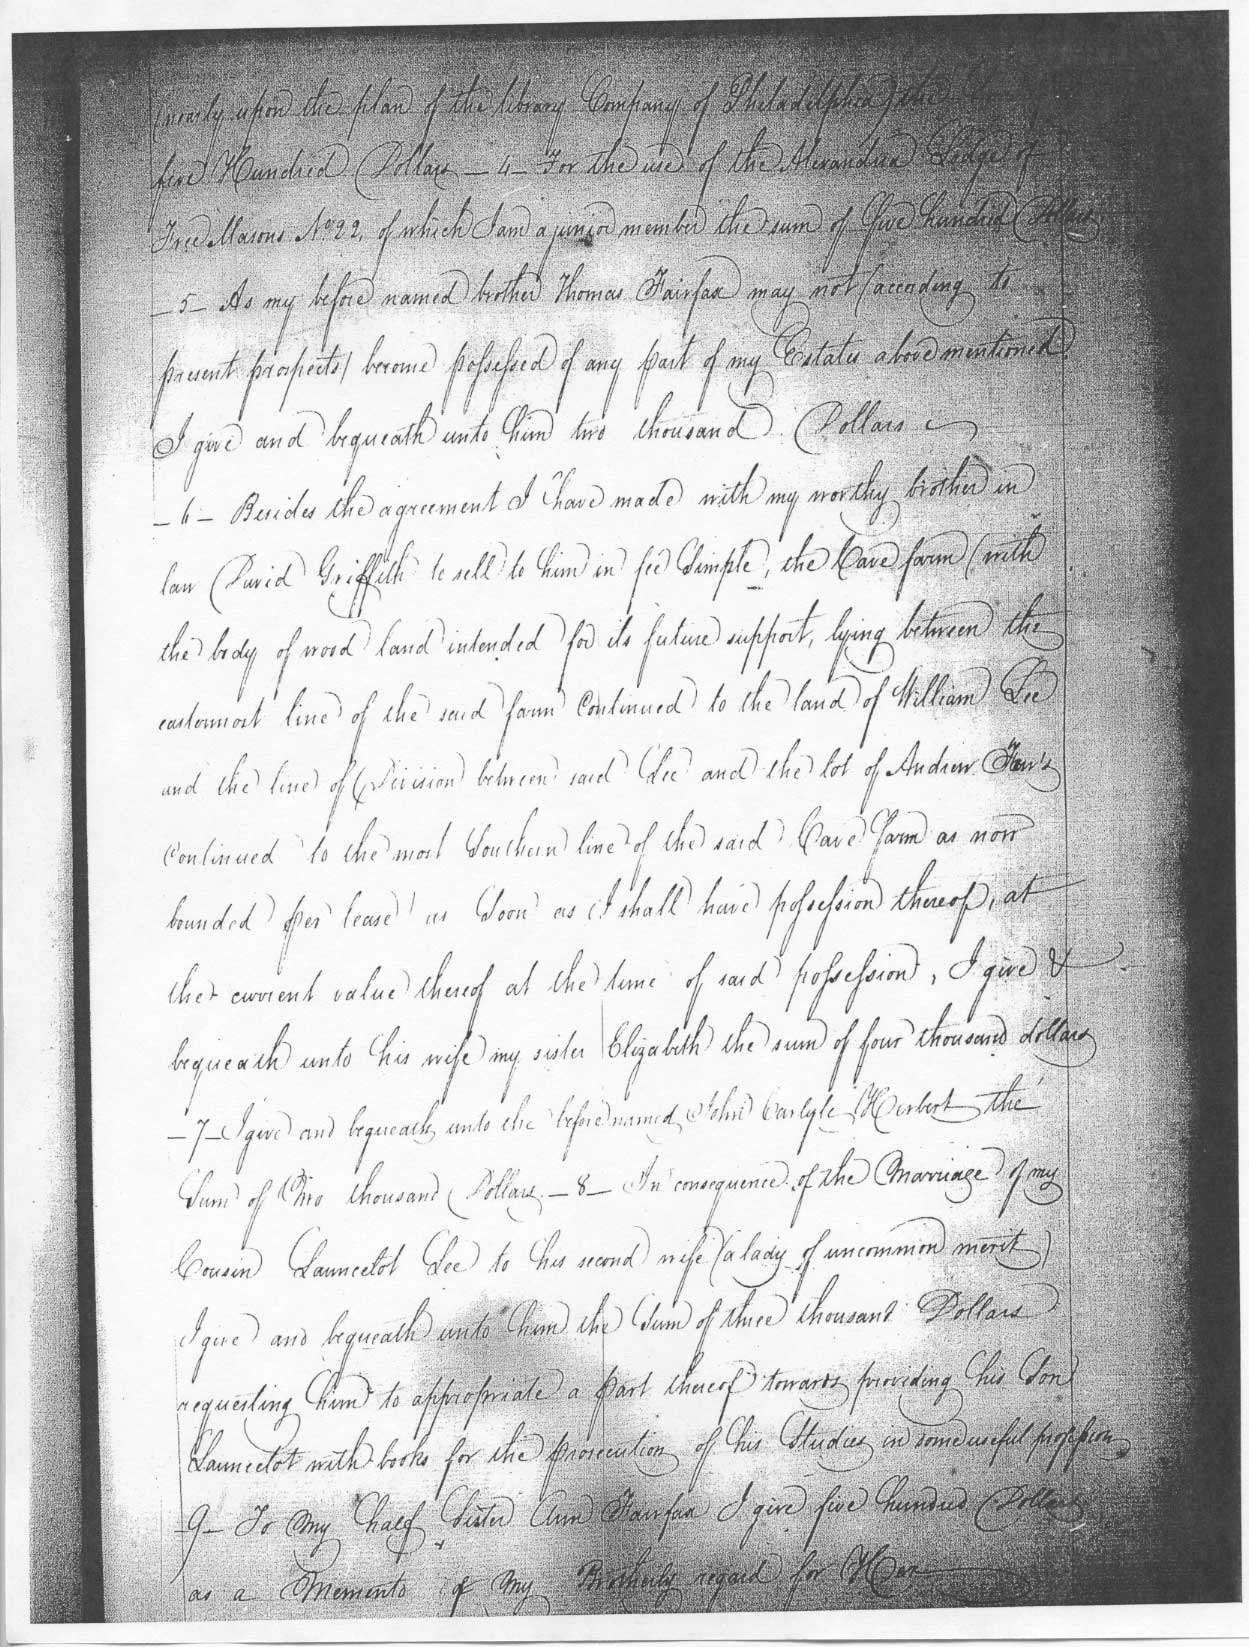 (nearly upon the plan of the library Company of Philadelphia) the
five Hundred Dollars — 4 — For the use of the Alexandria Lodge of
Free Masons No. 22, of which I am a junior member the sum of five hundred Dollars
— 5 — As my before named brother Thomas Fairfax may not (according to
present prospects) become possessed of any part of my Estates above mentioned
I give and bequeath unto him two thousand Dollars —
— 6 — Besides the agreement I have made with my worthy brother in
law David Griffith to sell to him in fee Simple, the Cave farm (with
the body of wood land intended for its future support, lying between the
easternmost line of the said farm Continued to the land of William Lee
and the line of Division between said Lee and the lot of Andrew
Continued to the most Southern line of the said Cave farm as now
bounded per lease as Soon as I shall have possession thereof, at
the current value thereof at the time of said possession, I give &
bequeath unto his wife my sister Elizabeth the sum of four thousand dollars
— 7 — I give and bequeath unto the before named John Carlyle Herbert the
Sum of Two thousand Dollars. — 8 — In consequence of the Marriage of my
Cousin Launcelot Lee to his second wife (a lady of uncommon merit)
I give and bequeath unto him the Sum of three thousand Dollars
requesting him to appropriate a part thereof towards providing his Son
Launcelot with books for the prosecution of his Studies in some useful profession
— 9 — To My half Sister Ann Fairfax I give five hundred Dollars
as a Memento of My Brotherly regard for Her —